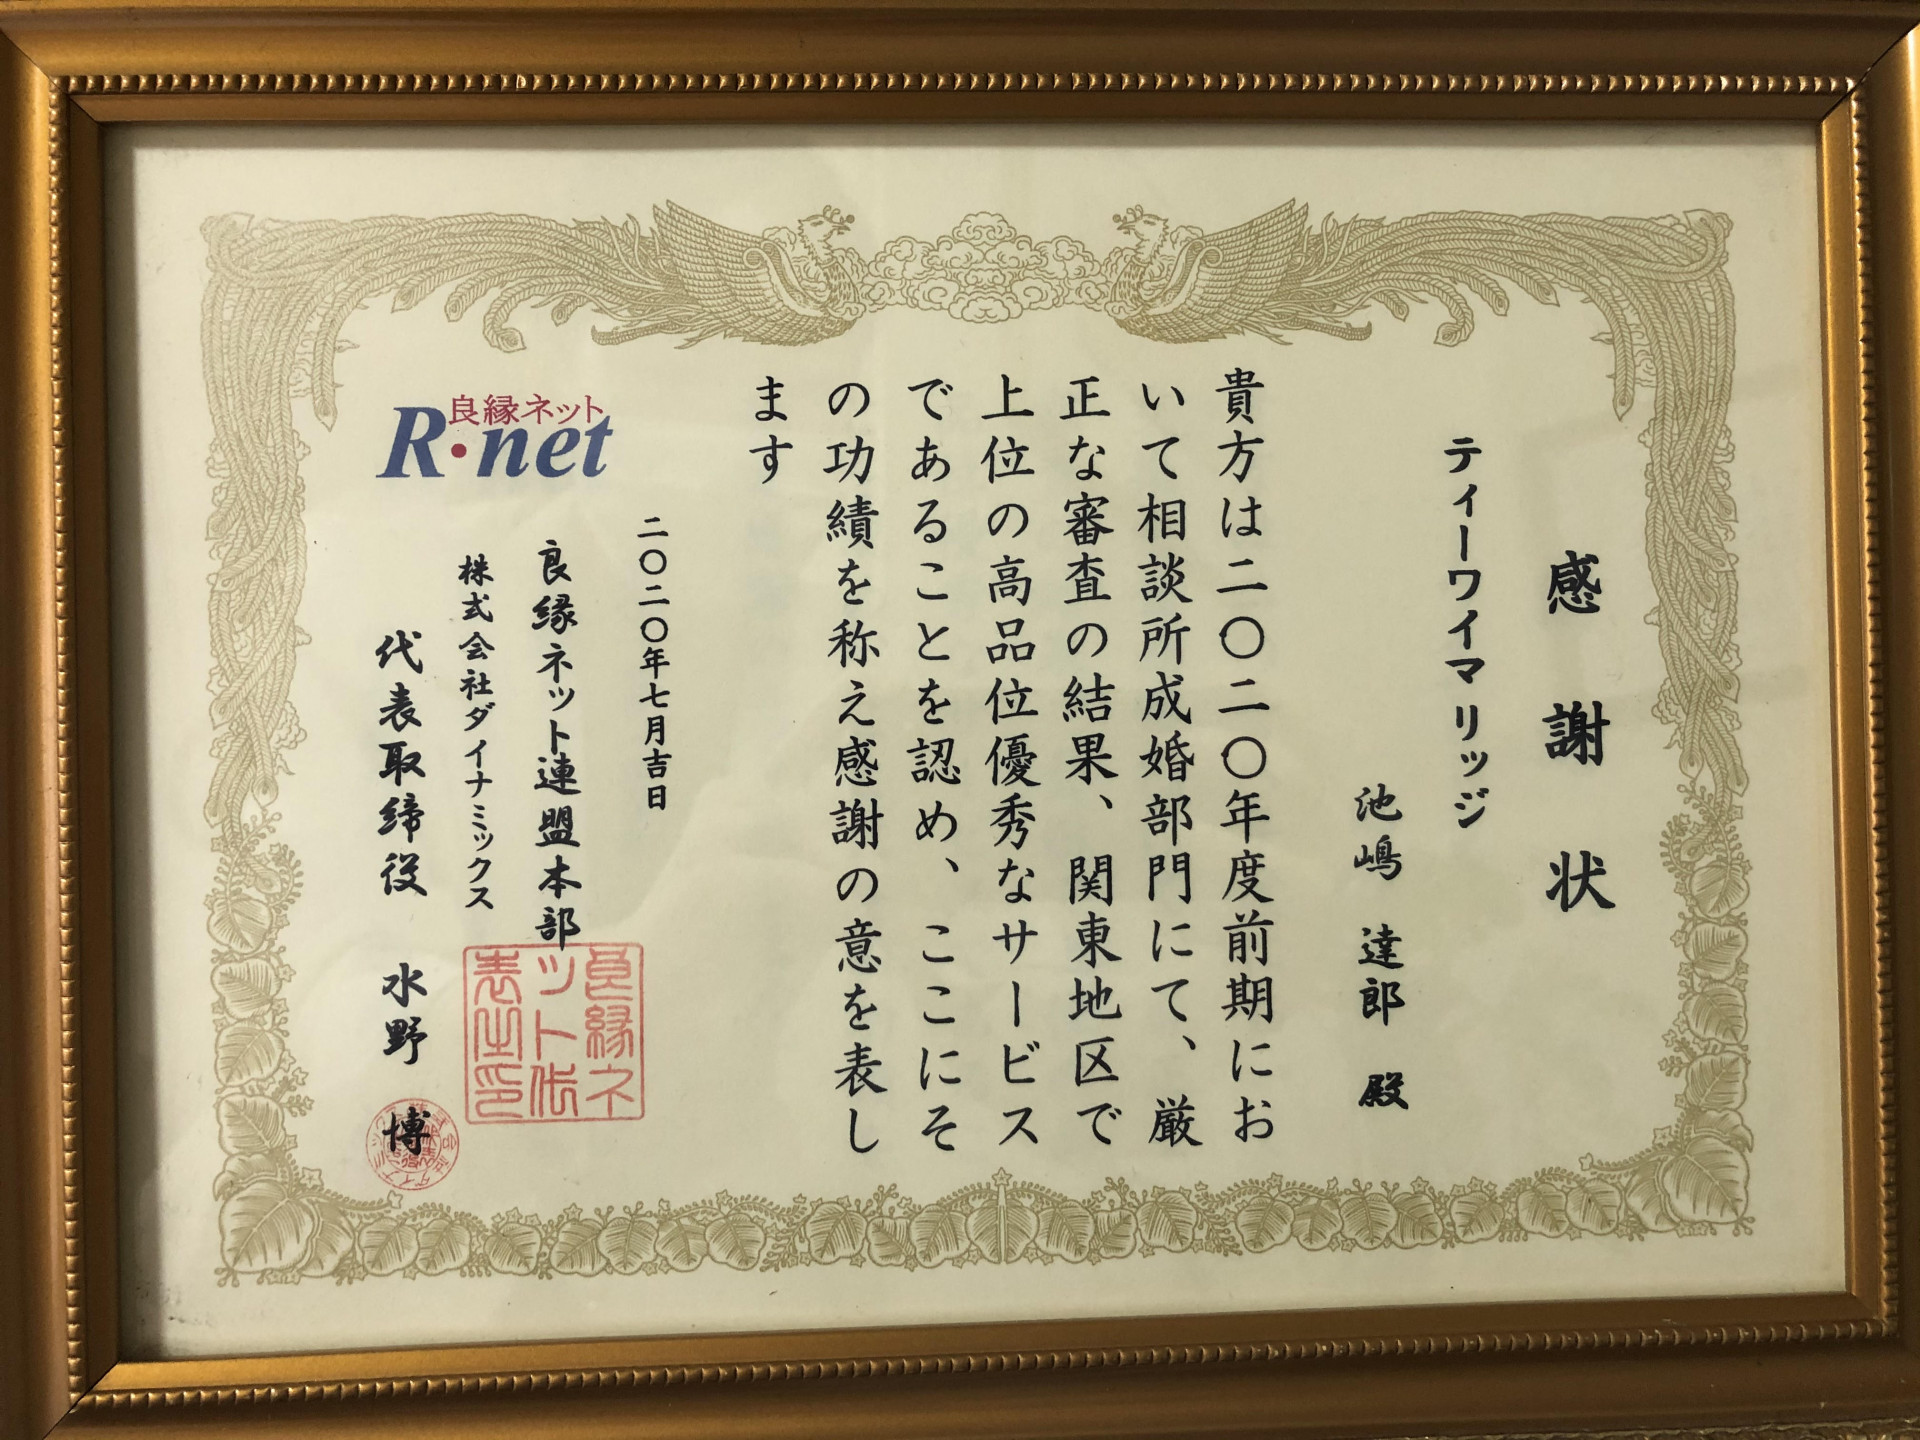 感謝状
ティーワイマリッジ
池嶋 達郎 殿
貴方は二〇二〇年度前期にお
いて相談所成婚部門にて、厳
正な審査の結果、関東地区で
上位の高品位優秀なサービス
であることを認め、ここにそ
の功績を称え感謝の意を表し
ます
二〇二〇年七月吉日
良縁ネット
R・net
良縁ネット連盟本部
株式会社ダイナミックス
代表取締役 水野 博
良縁ネ
ット代
表之印